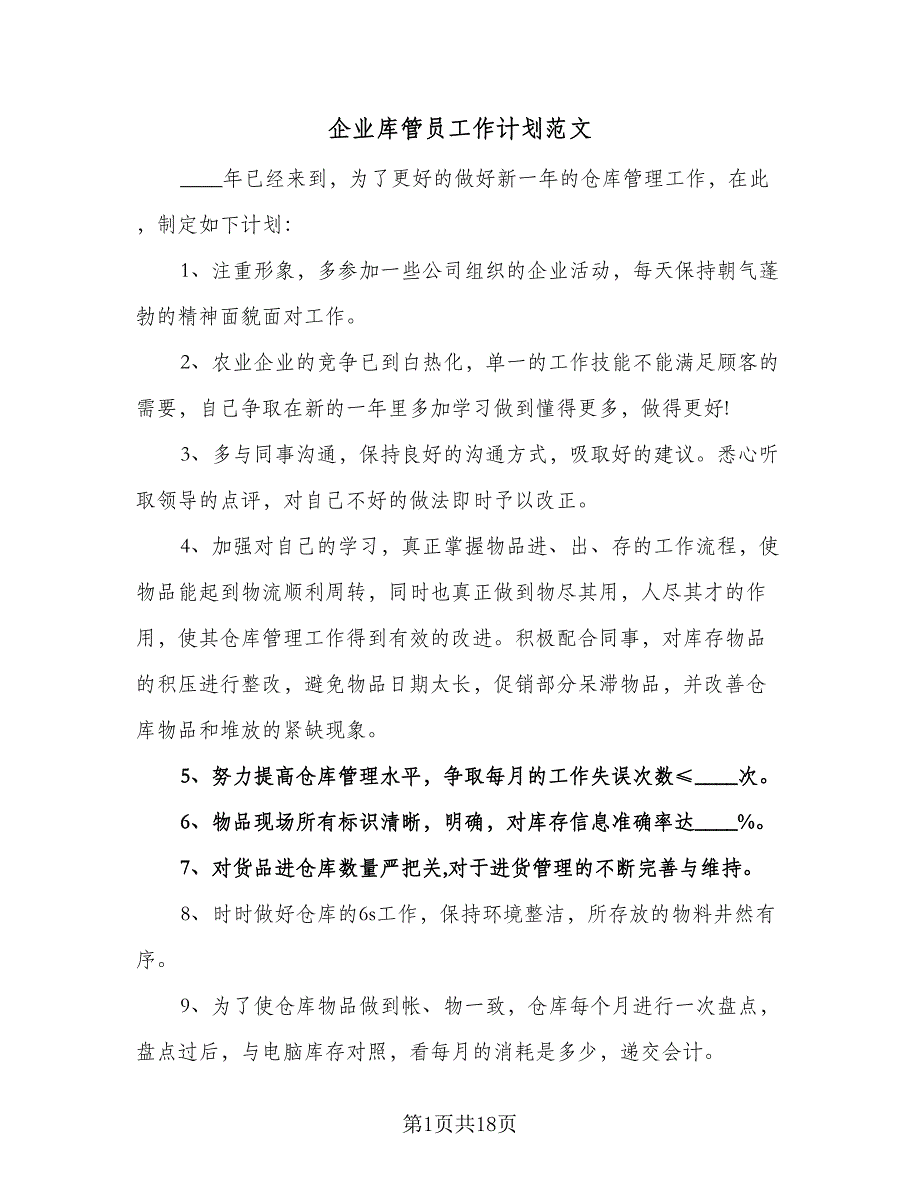 企业库管员工作计划范文
____年已经来到，为了更好的做好新一年的仓库管理工作，在此
，制定如下计划：
1、注重形象，多参加一些公司组织的企业活动，每天保持朝气蓬
勃的精神面貌面对工作。
2、农业企业的竞争已到白热化，单一的工作技能不能满足顾客的
需要，自己争取在新的一年里多加学习做到懂得更多，做得更好!
3、多与同事沟通，保持良好的沟通方式，吸取好的建议。悉心听
取领导的点评，对自己不好的做法即时予以改正。
4、加强对自己的学习，真正掌握物品进、出、存的工作流程，使
物品能起到物流顺利周转，同时也真正做到物尽其用，人尽其才的作
用，使其仓库管理工作得到有效的改进。积极配合同事，对库存物品
的积压进行整改，避免物品日期太长，促销部分呆滞物品，并改善仓
库物品和堆放的紧缺现象。
5、努力提高仓库管理水平，争取每月的工作失误次数≤____次。
6、物品现场所有标识清晰，明确，对库存信息准确率达____%。
7、对货品进仓库数量严把关,对于进货管理的不断完善与维持。
8、时时做好仓库的6s工作，保持环境整洁，所存放的物料井然有
序。
9、为了使仓库物品做到帐、物一致，仓库每个月进行一次盘点，
盘点过后，与电脑库存对照，看每月的消耗是多少，递交会计。
第1页共18页